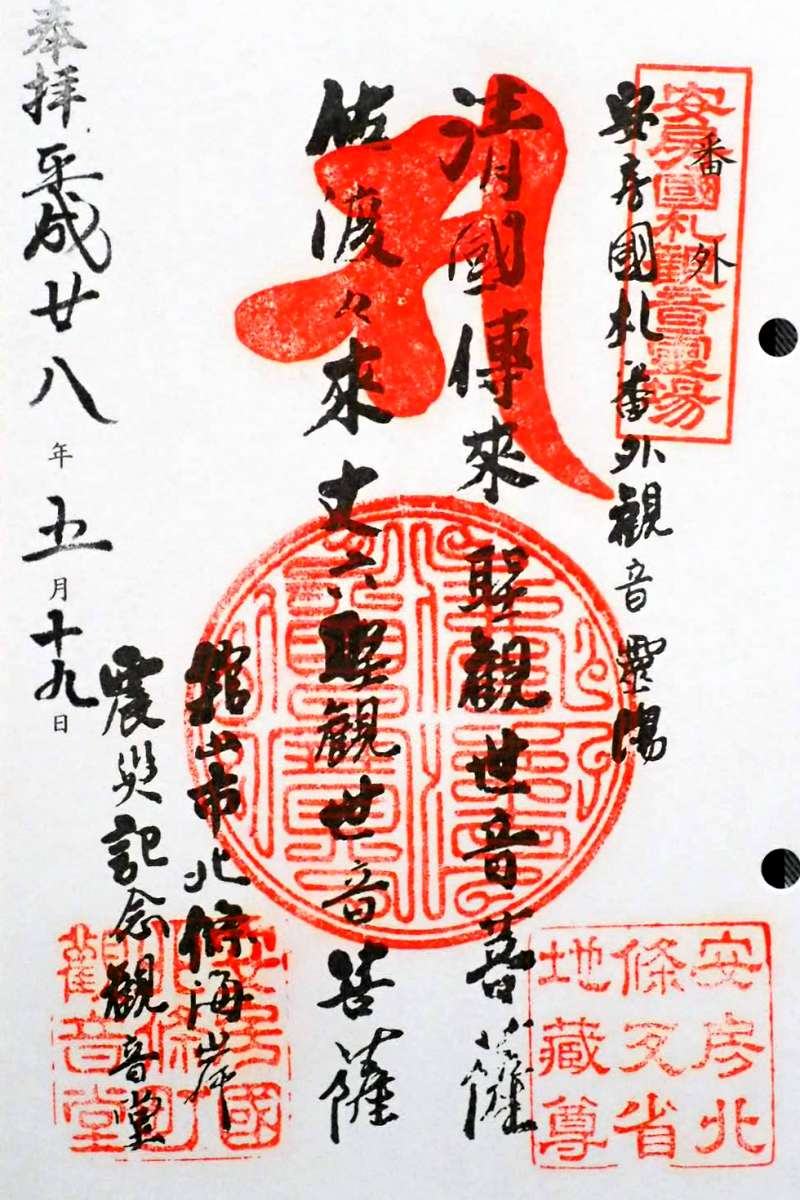 安房國札観音霊場
番外
安房國札番外観音霊場
清國傳來 聖観世音菩薩
佐渡々來 丈六聖観世音菩薩
館山市北條海岸
震災記念観音堂
奉拝 平成廿八年五月十九日
安房北
條反省
地藏尊
安房國
北條町
觀音堂